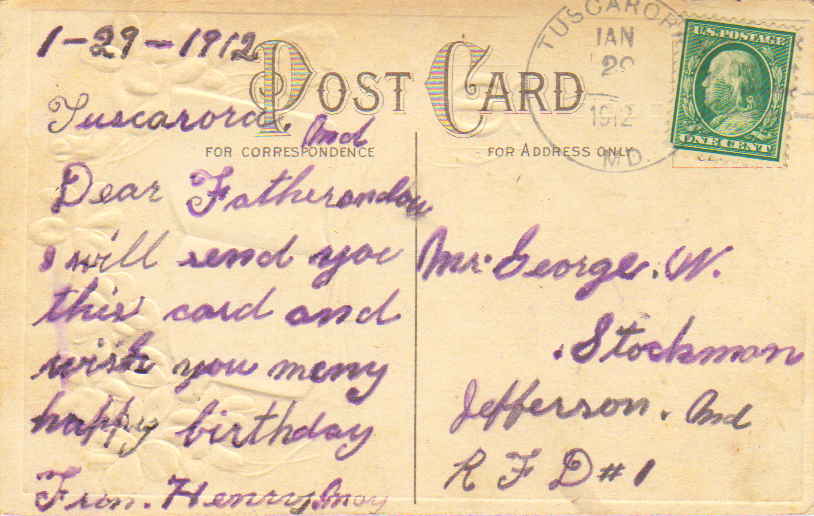 1-29-1912
POST CARD
TUSCARORA
JAN
29
1912
MD.
U.S. POSTAGE
ONE CENT
Tuscarora. Md
FOR CORRESPONDENCE
FOR ADDRESS ONLY
Dear Father
I will send you
this card and
wish you meny
happy birthday
From. Henry
Mr. George. W.
Stockman
Jefferson. Md
R F D #1